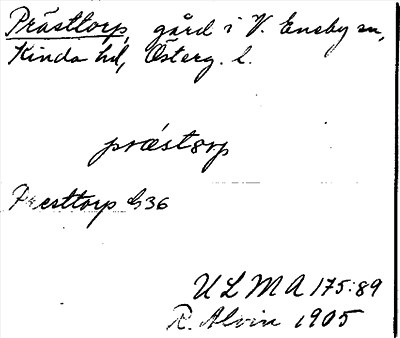 Prästtorp, gård i V. Eneby sn,
Kinda hd, Österg. l.
præ´stɔrp
Presttorp G36
ULMA 175:89
R. Alvin 1905